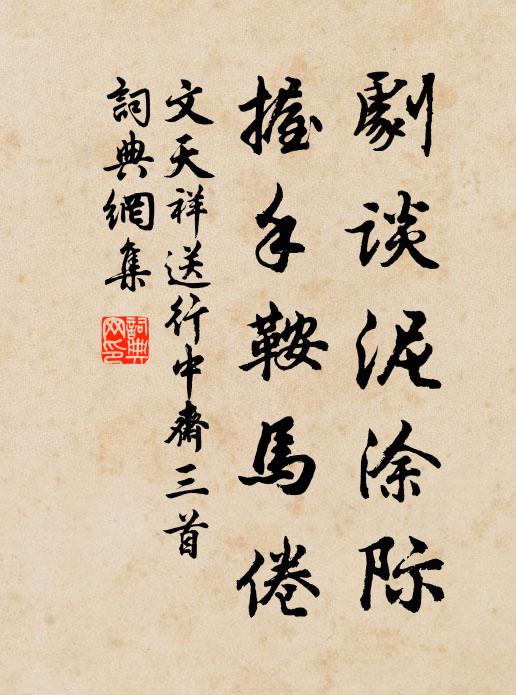 劇談泥涂際
握手鞍馬倦
文天祥送行中齋三首
詞典網集
詞典網印